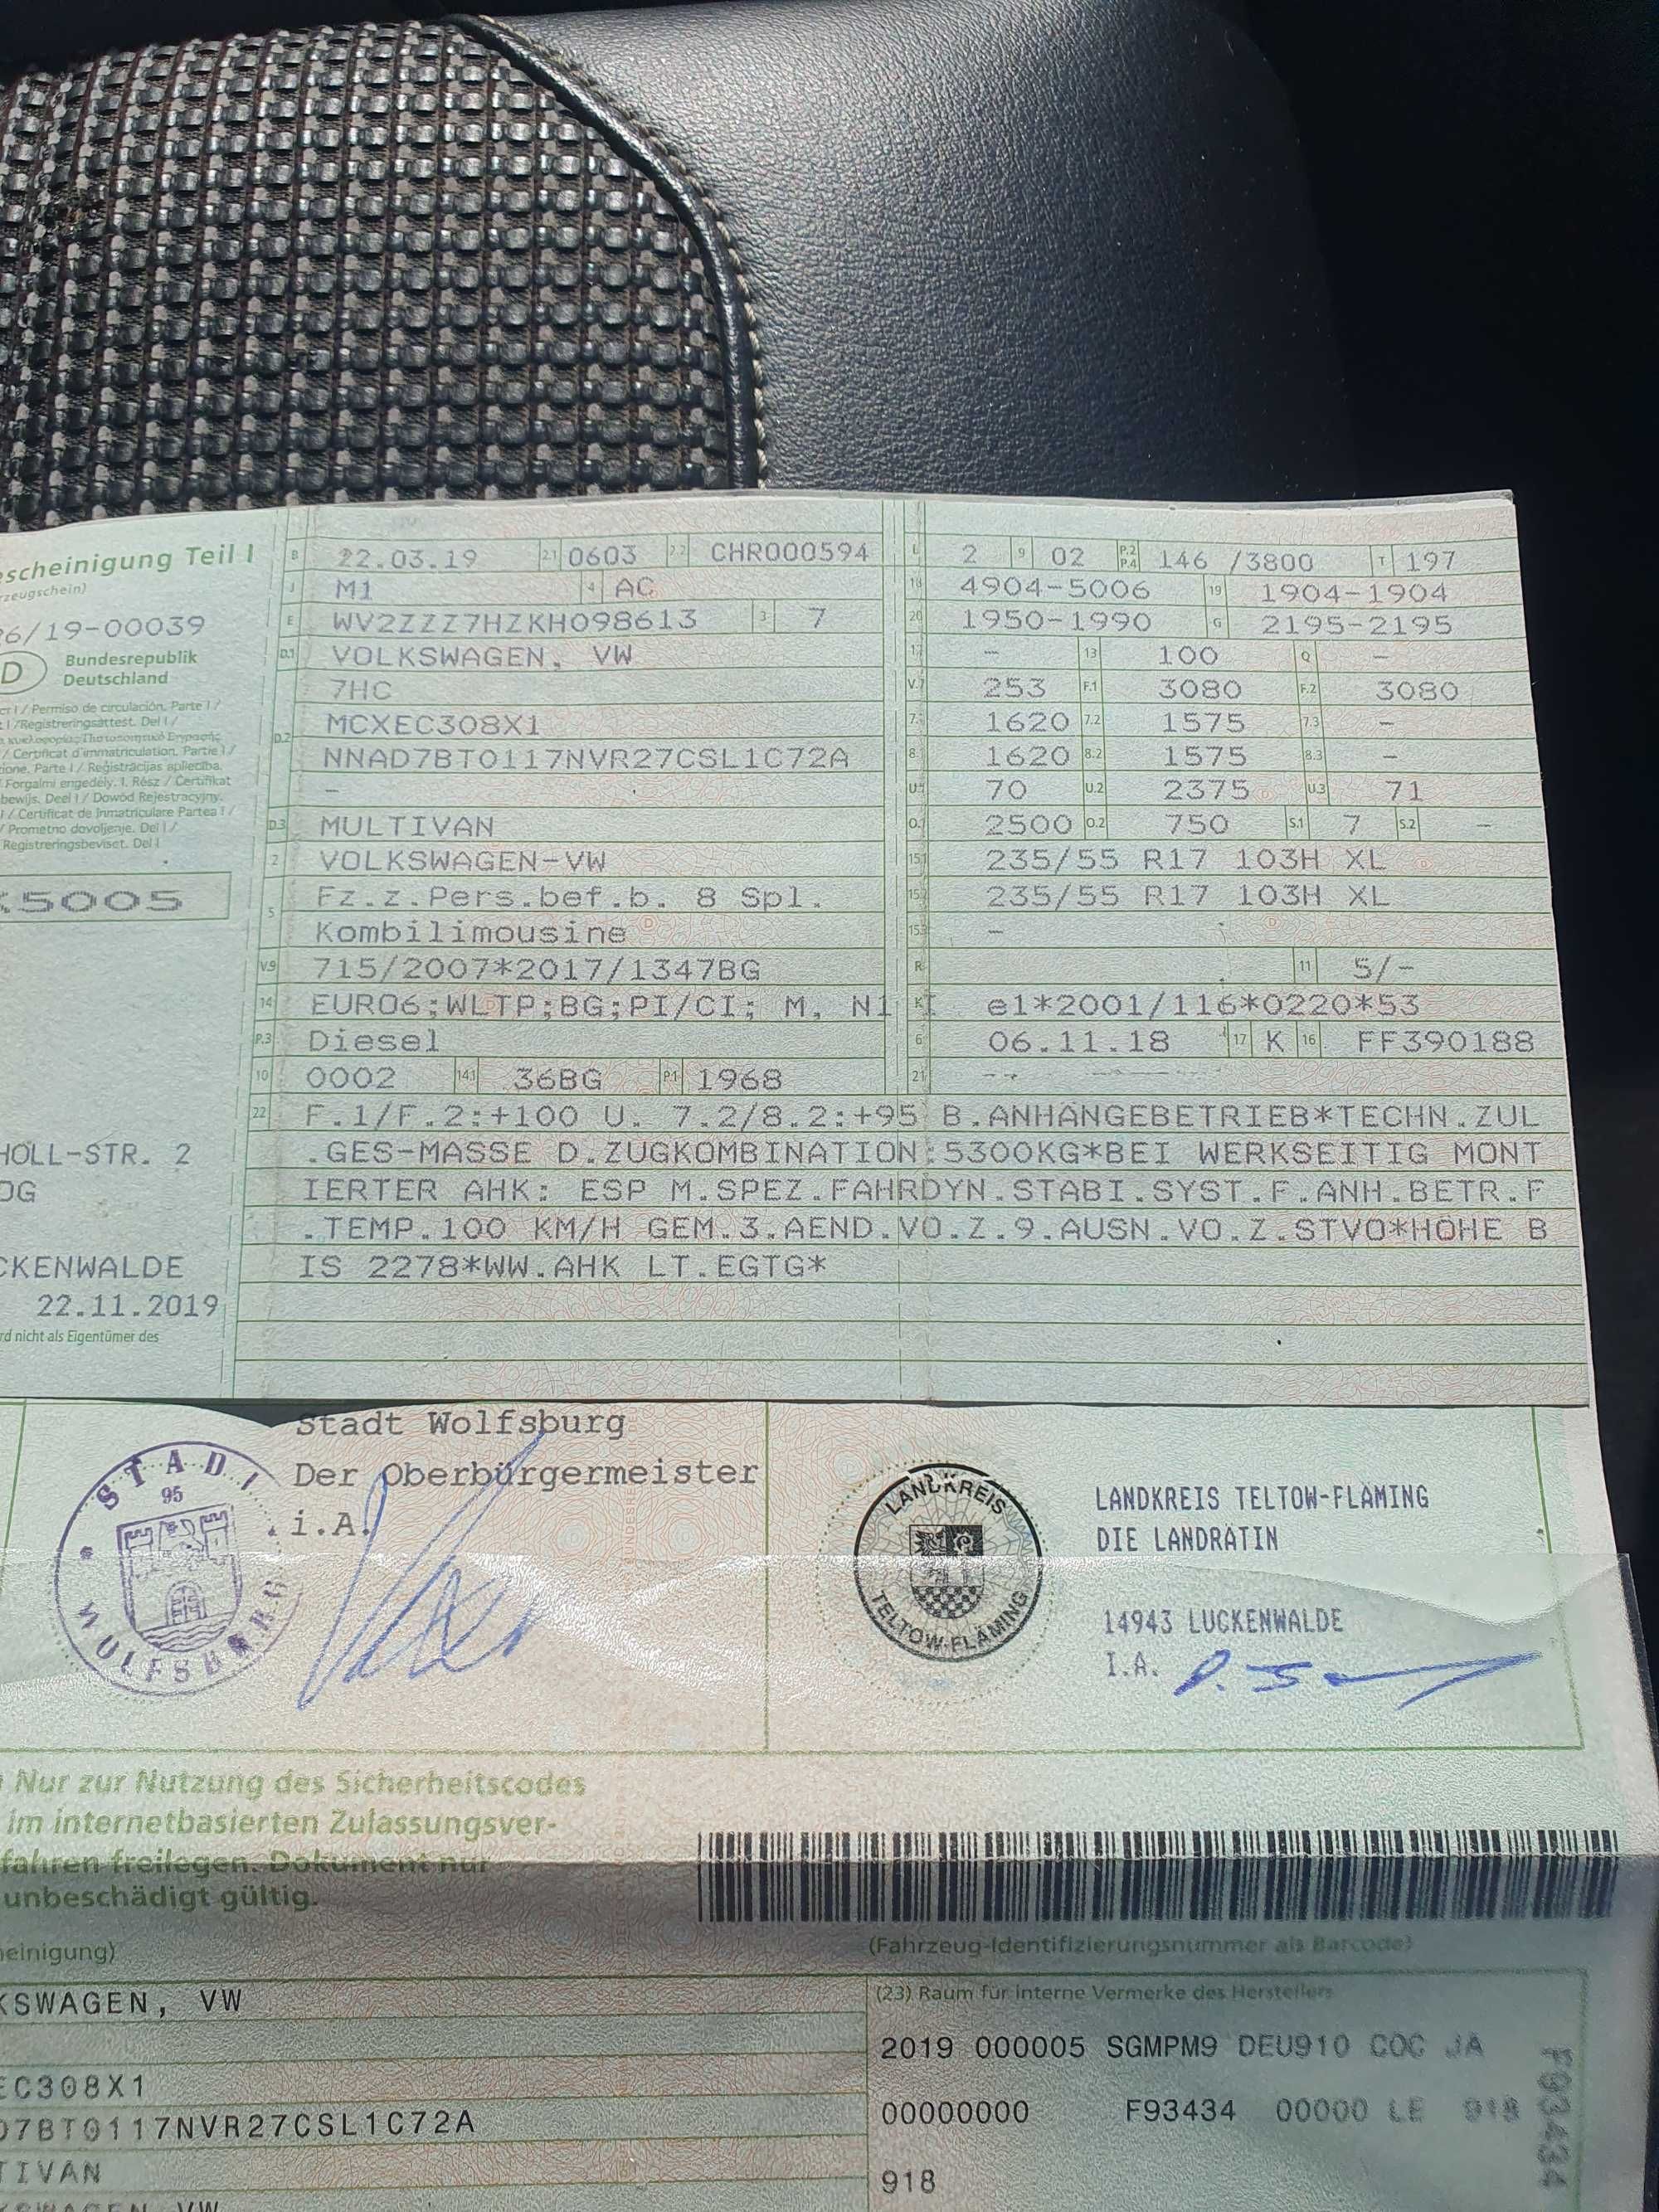 escheinigung Teil I
rzeugschein)
26/19-00039
D
Bundesrepublik
Deutschland
/ Permiso de circulación. Parte I /
I / Registreringsattest. Del I /
/ Certificat d'immatriculation. Partie I /
ione, Parte I / Reģistrācijas apliecība.
Forgalmi engedély. I. Rész / Certifikat
bewijs. Deel I / Dowód Rejestracyjny.
I / Certificat de Înmatriculare Partea I /
/ Prometno dovoljenje. Del I /
Registreringsbeviset. Del I
K5005
HOLL-STR. 2
OG
CKENWALDE
22.11.2019
rd nicht als Eigentümer des
B 22.03.19 2.1 0603 2.2 CHR000594
J M1 4 AC
E WV2ZZZ7HZKH098613 3 7
D.1 VOLKSWAGEN, VW
7HC
D.2 MCXEC308X1
NNAD7BT0117NVR27CSL1C72A
–
D.3 MULTIVAN
2 VOLKSWAGEN-VW
5 Fz.z.Pers.bef.b. 8 Spl.
Kombilimousine
V.9 715/2007*2017/1347BG
14 EURO6;WLTP;BG;PI/CI; M, N1 I
P.3 Diesel
10 0002 14.1 36BG P.1 1968
L 2 9 02 P.2 P.4 146 /3800 T 197
18 4904-5006 19 1904-1904
20 1950-1990 G 2195-2195
12 – 13 100 Q –
V.7 253 F.1 3080 F.2 3080
7.1 1620 7.2 1575 7.3 –
8.1 1620 8.2 1575 8.3 –
U.1 70 U.2 2375 U.3 71
O.1 2500 O.2 750 S.1 7 S.2 –
15.1 235/55 R17 103H XL
15.2 235/55 R17 103H XL
15.3 –
R 11 5/-
K e1*2001/116*0220*53
6 06.11.18 17 K 16 FF390188
21
22 F.1/F.2:+100 U. 7.2/8.2:+95 B.ANHÄNGEBETRIEB*TECHN.ZUL
.GES-MASSE D.ZUGKOMBINATION:5300KG*BEI WERKSEITIG MONT
IERTER AHK: ESP M.SPEZ.FAHRDYN.STABI.SYST.F.ANH.BETR.F
.TEMP.100 KM/H GEM.3.AEND.VO.Z.9.AUSN.VO.Z.STVO*HÖHE B
IS 2278*WW.AHK LT.EGTG*
Stadt Wolfsburg
Der Oberbürgermeister
i.A.
STADT
95
WOLFSBURG
LANDKREIS
TELTOW-FLÄMING
LANDKREIS TELTOW-FLÄMING
DIE LANDRÄTIN
14943 LUCKENWALDE
I.A.
Nur zur Nutzung des Sicherheitscodes
im internetbasierten Zulassungsver-
fahren freilegen. Dokument nur
unbeschädigt gültig.
heinigung)
(Fahrzeug-Identifizierungsnummer als Barcode)
KSWAGEN, VW
EC308X1
D7BT0117NVR27CSL1C72A
TIVAN
KSWAGEN-VW
(23) Raum für interne Vermerke des Herstellers
2019 000005 SGMPM9 DEU910 COC JA
00000000 F93434 00000 LE 918
918
F93434